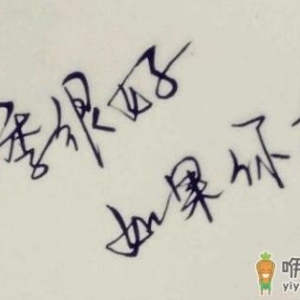 季很好
如果你
咿
yiy